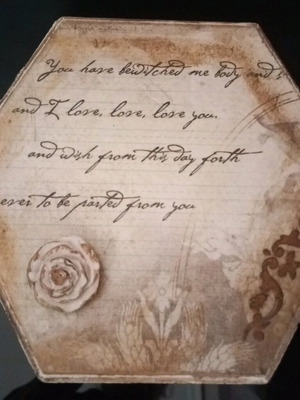 You have bewitched me body and s
and I love, love, love you.
and wish from this day forth
ever to be parted from you